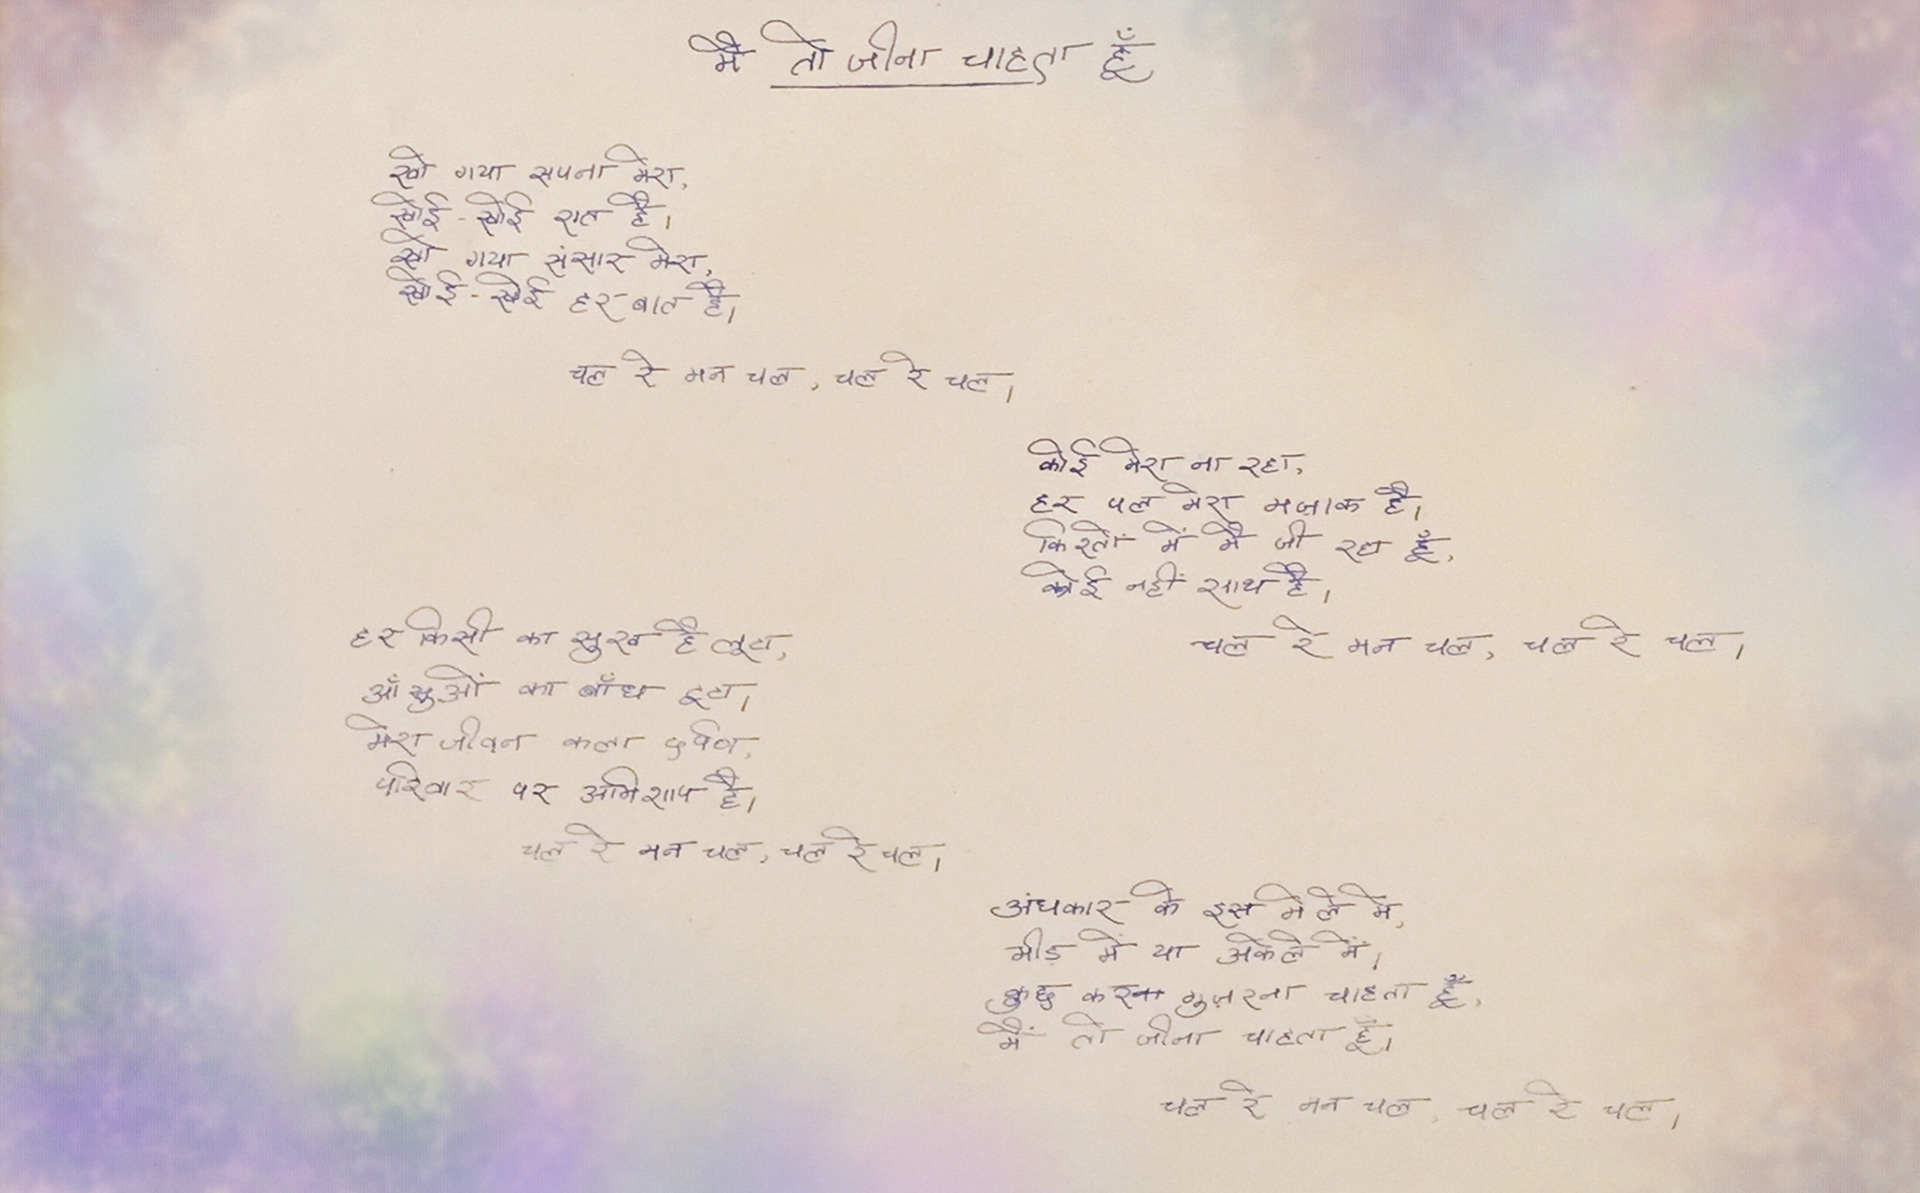 मैं तो जीना चाहता हूँ
खो गया सपना मेरा,
खोई-खोई रात है।
खो गया संसार मेरा,
खोई-खोई हर बात है।
चल रे मन चल, चल रे चल।
कोई मेरा ना रहा,
हर पल मेरा मज़ाक है।
किश्तों में मैं जी रहा हूँ,
कोई नहीं साथ है।
चल रे मन चल, चल रे चल।
हर किसी का सुख है लूटा,
आँसुओं का बाँध टूटा।
मेरा जीवन कला दर्पण,
परिवार पर अभिशाप है।
चल रे मन चल, चल रे चल।
अंधकार के इस मेले में,
भीड़ में या अकेले में।
कुछ कर गुज़रना चाहता हूँ,
मैं तो जीना चाहता हूँ।
चल रे मन चल, चल रे चल।